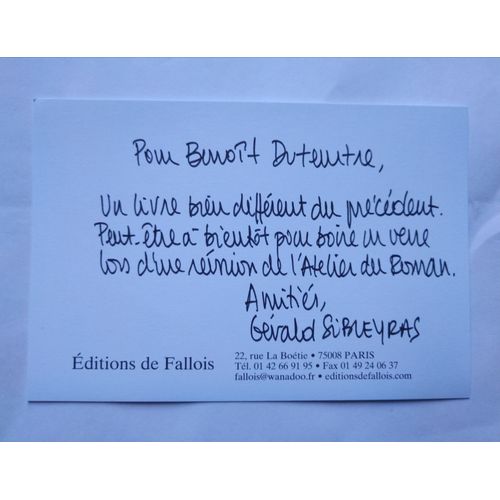 Pour Benoît Duteurtre,
Un livre bien différent du précédent.
Peut-être à bientôt pour boire un verre
lors d'une réunion de l'Atelier du Roman.
Amitiés,
Gérald SIBLEYRAS
Éditions de Fallois
22, rue La Boétie • 75008 PARIS
Tél. 01 42 66 91 95 • Fax 01 49 24 06 37
fallois@wanadoo.fr • editionsdefallois.com